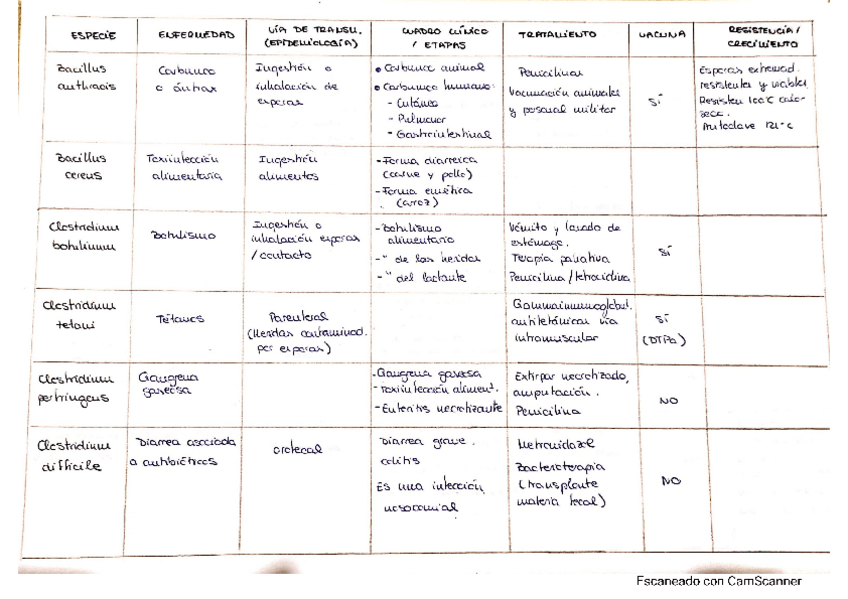 ESPECIE
ENFERMEDAD
VÍA DE TRANSM.
(EPIDEMIOLOGÍA)
CUADRO CLÍNICO
/ ETAPAS
TRATAMIENTO
VACUNA
RESISTENCIA/
CRECIMIENTO
Bacillus
anthracis
Carbunco
o ántrax
Ingestión o
inhalación de
esporas
• Carbunco animal
• Carbunco humano:
- Cutáneo
- Pulmonar
- Gastrointestinal
Penicilinas
Vacunación animales
y personal militar
SÍ
Esporas extremad.
resistentes y viables.
Resisten 100°C calor
seco.
Autoclave 121°C
Bacillus
cereus
Toxiinfección
alimentaria
Ingestión
alimentos
- Forma diarreica
(carne y pollo)
- Forma emética
(arroz)
Clostridium
botulinum
Botulismo
Ingestión o
inhalación esporas
/ contacto
- Botulismo
alimentario
- " de las heridas
- " del lactante
Vómito y lavado de
estómago.
Terapia paliativa
Penicilina / tetraciclina
SÍ
Clostridium
tetani
Tétanos
Parenteral
(Heridas contaminad.
por esporas)
Gammainmunoglobul.
antitetánicas vía
intramuscular
SÍ
(DTPa)
Clostridium
perfringens
Gangrena
gaseosa
- Gangrena gaseosa
- Toxiinfección aliment.
- Enteritis necrotizante
Extirpar necrotizado,
amputación.
Penicilina
NO
Clostridium
difficile
Diarrea asociada
a antibióticos
orofecal
Diarrea grave.
colitis
Es una infección
nosocomial
Metronidazol
Bacterioterapia
(transplante
materia fecal)
NO
Escaneado con CamScanner